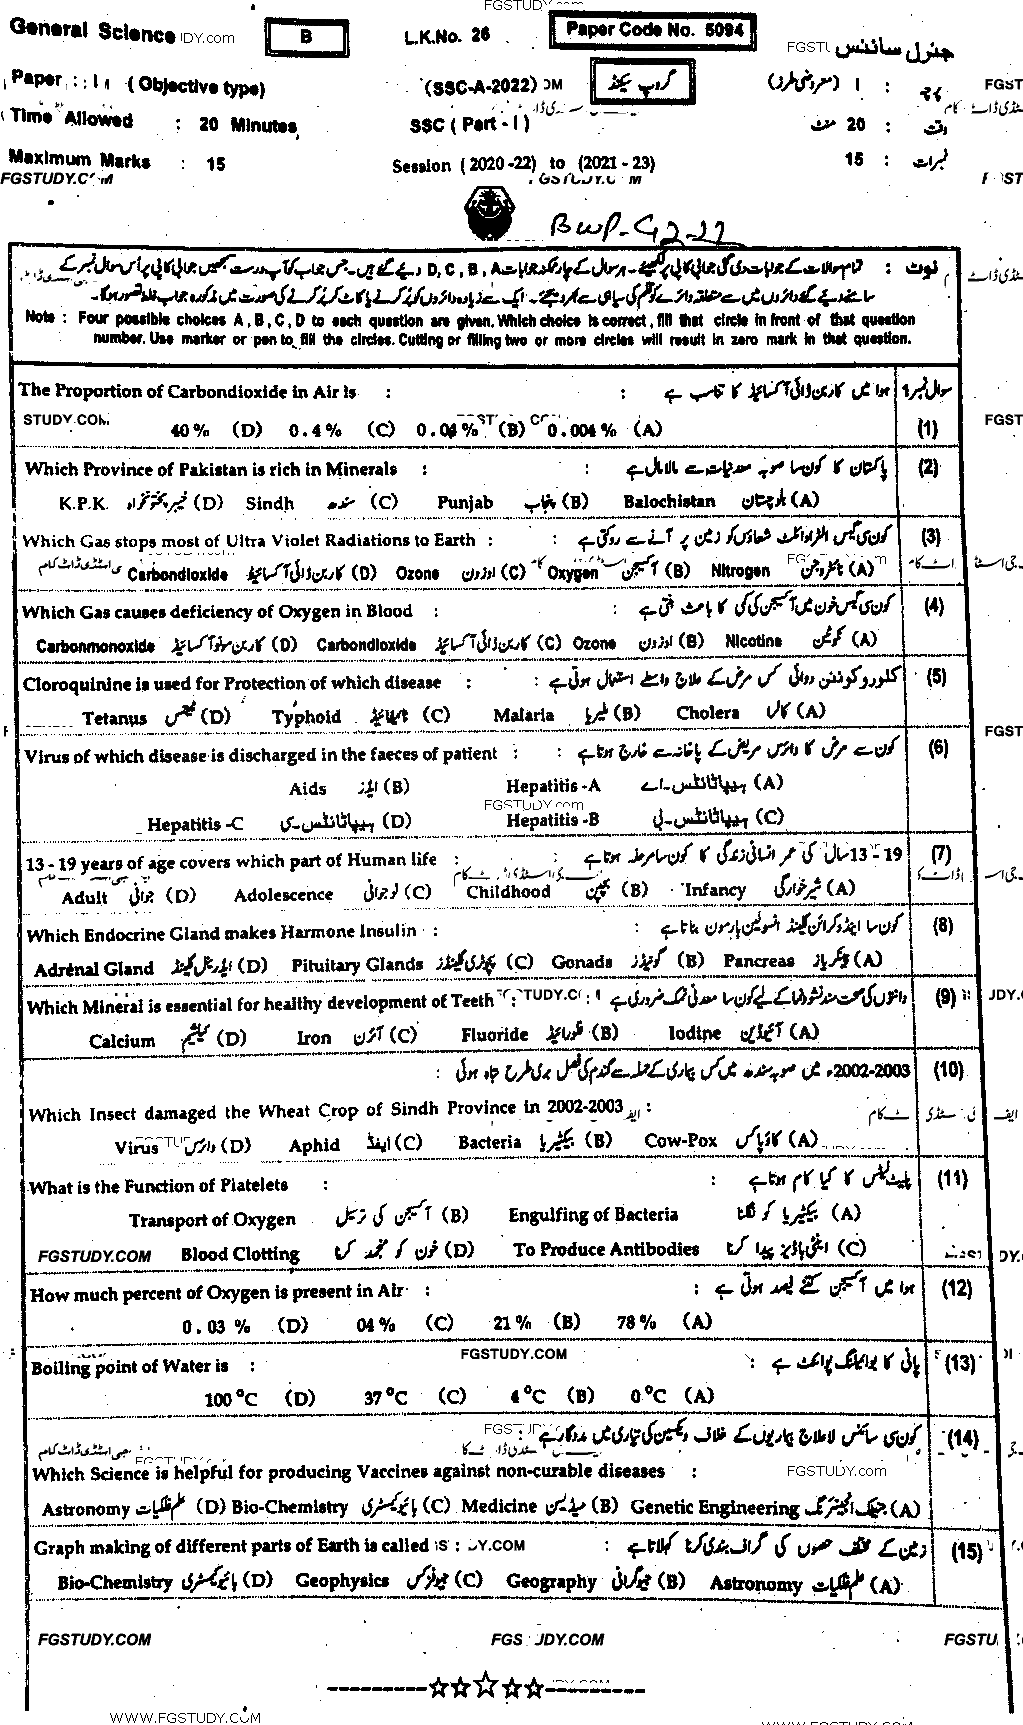 FGSTUDY.com
General Science B L.K.No. 26 Paper Code No. 5094 جنرل سائنس
Paper : I (Objective type) (SSC-A-2022) گروپ سیکنڈ پرچہ : I (معروضی طرز)
Time Allowed : 20 Minutes SSC (Part - I) وقت : 20 منٹ
Maximum Marks : 15 Session (2020-22) to (2021-23) نمبرات : 15
FGSTUDY.COM
BWP-G2-22
نوٹ : تمام سوالات کے جوابات دی گئی جوابی کاپی پر لکھیے۔ ہر سوال کے چار ممکنہ جوابات A, B, C, D دیے گئے ہیں۔ جس جواب کو آپ درست سمجھیں جوابی کاپی پر اس سوال نمبر کے
سامنے دیے گئے دائروں میں سے متعلقہ دائرے کو قلم کی سیاہی سے بھر دیجئے۔ ایک سے زیادہ دائروں کو پُر کرنے یا کاٹ کر پُر کرنے کی صورت میں مذکورہ جواب غلط تصور ہوگا۔
Note : Four possible choices A, B, C, D to each question are given. Which choice is correct, fill that circle in front of that question
number. Use marker or pen to fill the circles. Cutting or filling two or more circles will result in zero mark in that question.
The Proportion of Carbondioxide in Air is : ہوا میں کاربن ڈائی آکسائیڈ کا تناسب ہے : سوال نمبر 1
40% (D) 0.4% (C) 0.04% (B) 0.004% (A) (1)
Which Province of Pakistan is rich in Minerals : پاکستان کا کون سا صوبہ معدنیات سے مالا مال ہے : (2)
K.P.K. خیبر پختونخواہ (D) Sindh سندھ (C) Punjab پنجاب (B) Balochistan بلوچستان (A)
Which Gas stops most of Ultra Violet Radiations to Earth : کون سی گیس الٹراوائلٹ شعاؤں کو زمین پر آنے سے روکتی ہے : (3)
Carbondioxide کاربن ڈائی آکسائیڈ (D) Ozone اوزون (C) Oxygen آکسیجن (B) Nitrogen نائٹروجن (A)
Which Gas causes deficiency of Oxygen in Blood : کون سی گیس خون میں آکسیجن کی کمی کا باعث بنتی ہے : (4)
Carbonmonoxide کاربن مونو آکسائیڈ (D) Carbondioxide کاربن ڈائی آکسائیڈ (C) Ozone اوزون (B) Nicotine نکوٹین (A)
Cloroquinine is used for Protection of which disease : کلوروکوئنین دوائی کس مرض کے علاج واسطے استعمال ہوتی ہے : (5)
Tetanus ٹیٹنس (D) Typhoid ٹائیفائیڈ (C) Malaria ملیریا (B) Cholera کالرا (A)
Virus of which disease is discharged in the faeces of patient : کون سے مرض کا وائرس مریض کے پاخانہ سے خارج ہوتا ہے : (6)
Aids ایڈز (B) Hepatitis -A ہیپاٹائٹس۔اے (A)
FGSTUDY.com
Hepatitis -C ہیپاٹائٹس۔سی (D) Hepatitis -B ہیپاٹائٹس۔بی (C)
13 - 19 years of age covers which part of Human life : 13 - 19 سال کی عمر انسانی زندگی کا کون سا مرحلہ ہوتا ہے : (7)
Adult جوانی (D) Adolescence نوجوانی (C) Childhood بچپن (B) Infancy شیرخوارگی (A)
Which Endocrine Gland makes Harmone Insulin : کون سا اینڈوکرائن گلینڈ انسولین ہارمون بناتا ہے : (8)
Adrenal Gland ایڈرینل گلینڈ (D) Pituitary Glands پچوٹری گلینڈز (C) Gonads گونیڈز (B) Pancreas پینکریاز (A)
Which Mineral is essential for healthy development of Teeth : دانتوں کی صحت مند نشوونما کے لیے کون سا معدنی نمک ضروری ہے : (9)
Calcium کیلشیم (D) Iron آئرن (C) Fluoride فلورائیڈ (B) Iodine آئیوڈین (A)
2002-2003ء میں صوبہ سندھ میں کس بیماری کے حملہ سے گندم کی فصل بری طرح تباہ ہوئی : (10)
Which Insect damaged the Wheat Crop of Sindh Province in 2002-2003 :
Virus وائرس (D) Aphid ایفڈ (C) Bacteria بیکٹیریا (B) Cow-Pox کاؤ پاکس (A)
What is the Function of Platelets : پلیٹ لیٹس کا کیا کام ہوتا ہے : (11)
Transport of Oxygen آکسیجن کی ترسیل (B) Engulfing of Bacteria بیکٹیریا کو نگلنا (A)
FGSTUDY.COM Blood Clotting خون کو منجمد کرنا (D) To Produce Antibodies اینٹی باڈیز پیدا کرنا (C)
How much percent of Oxygen is present in Air : ہوا میں آکسیجن کتنے فیصد ہوتی ہے : (12)
0.03 % (D) 04 % (C) 21 % (B) 78 % (A)
FGSTUDY.COM
Boiling point of Water is : پانی کا بوائلنگ پوائنٹ ہے : (13)
100 °C (D) 37 °C (C) 4 °C (B) 0 °C (A)
کون سی سائنس لاعلاج بیماریوں کے خلاف ویکسین کی تیاری میں مددگار ہے : (14)
Which Science is helpful for producing Vaccines against non-curable diseases : FGSTUDY.com
Astronomy علم فلکیات (D) Bio-Chemistry بائیوکیمسٹری (C) Medicine میڈیسن (B) Genetic Engineering جینیٹک انجینئرنگ (A)
Graph making of different parts of Earth is called : زمین کے مختلف حصوں کی گراف بندی کرنا کہلاتا ہے : (15)
Bio-Chemistry بائیوکیمسٹری (D) Geophysics جیوفزکس (C) Geography جیوگرافی (B) Astronomy علم فلکیات (A)
FGSTUDY.COM FGSTUDY.COM FGSTU
WWW.FGSTUDY.COM WWW.FGSTUDY.COM